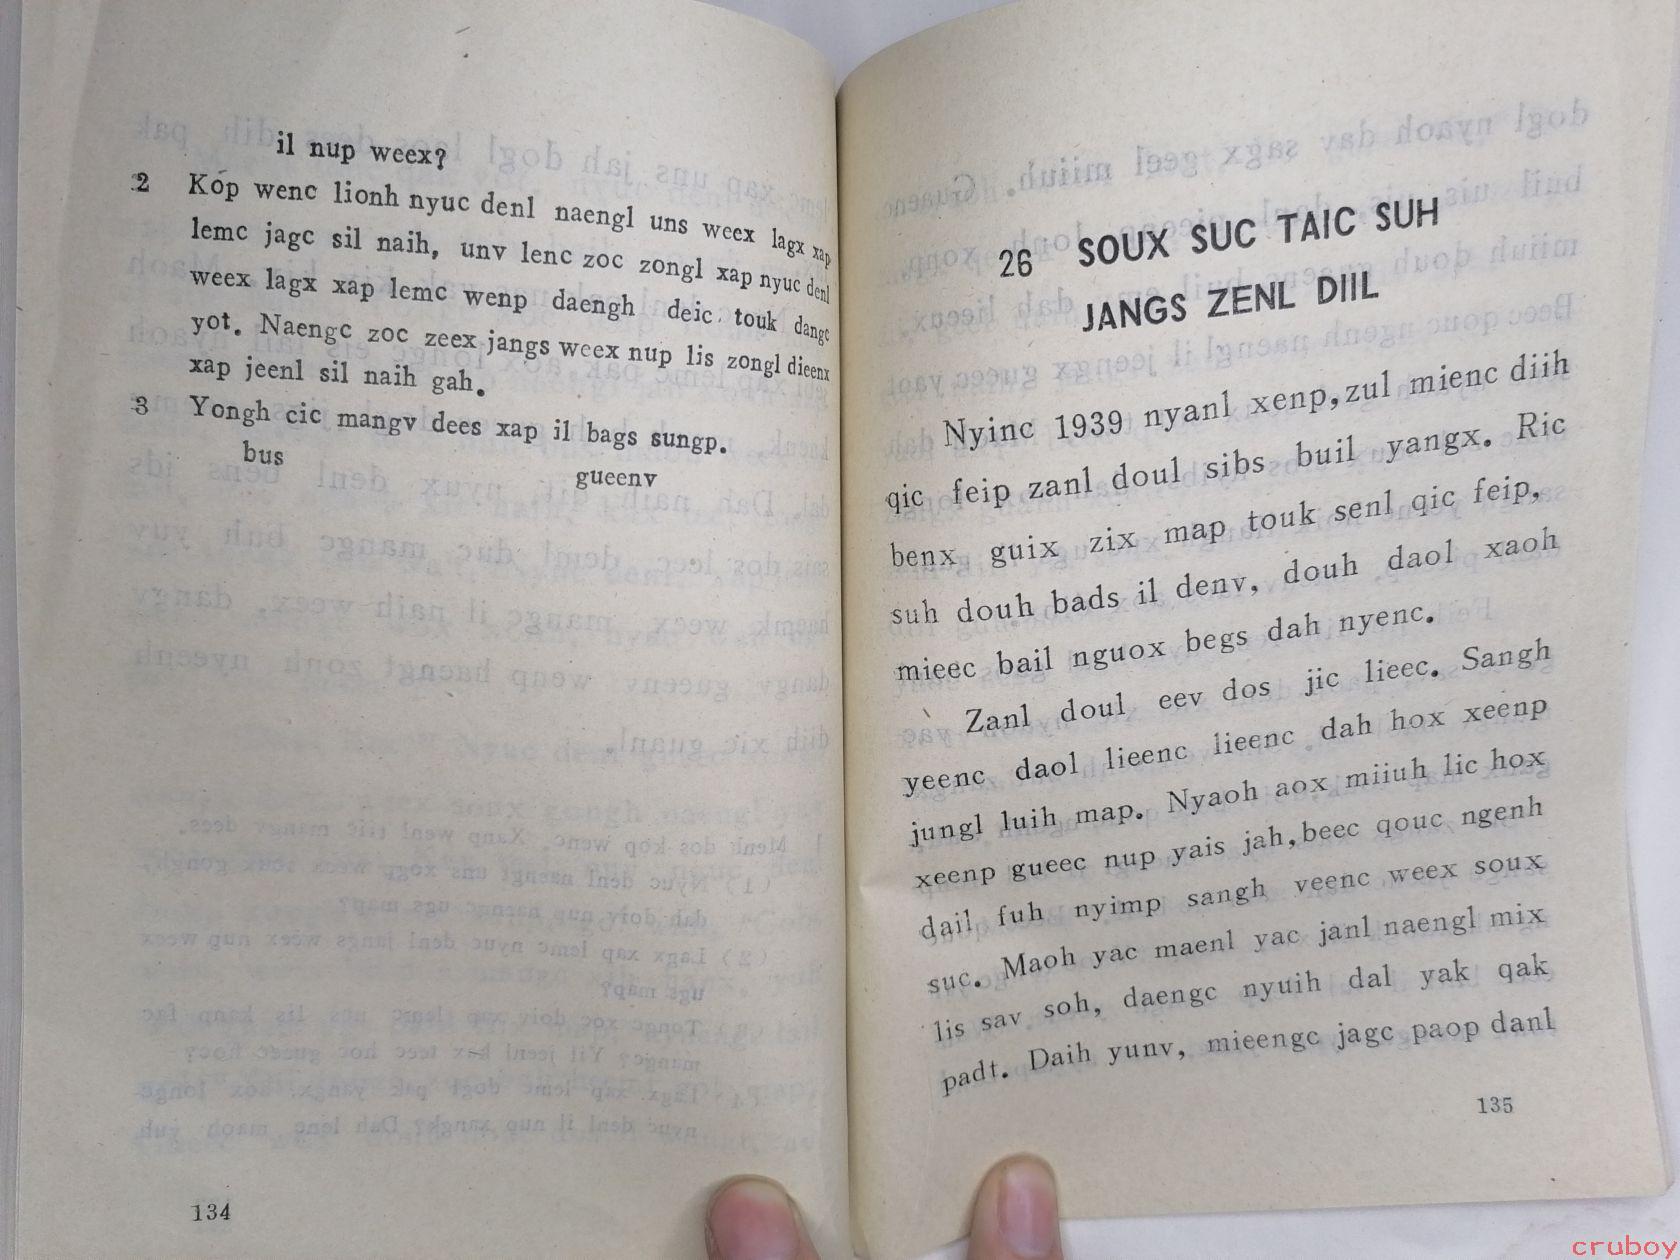 il nup weex?
2 Kop wenc lionh nyuc denl naengl uns weex lagx xap
lemc jagc sil naih, unv lenc zoc zongl xap nyuc denl
weex lagx xap lemc wenp daengh deic touk dangc
yot. Naengc zoc zeex jangs weex nup lis zongl dieenx
xap jeenl sil naih gah.
3 Yongh cic mangv dees xap il bags sungp.
bus gueenv
134
26 SOUX SUC TAIC SUH
JANGS ZENL DIIL
Nyinc 1939 nyanl xenp, zul mienc diih
qic feip zanl doul sibs buil yangx. Ric
benx guix zix map touk senl qic feip,
suh douh bads il denv, douh daol xaoh
mieec bail nguox begs dah nyenc.
Zanl doul eev dos jic lieec. Sangh
yeenc daol lieenc lieenc dah hox xeenp
jungl luih map. Nyaoh aox miiuh lic hox
xeenp gueec nup yais jah, beec qouc ngenh
dail fuh nyimp sangh veenc weex soux
suc. Maoh yac maenl yac janl naengl mix
lis sav soh, daengc nyuih dal yak qak
padt. Daih yunv, mieengc jagc paop danl
135
cruboy